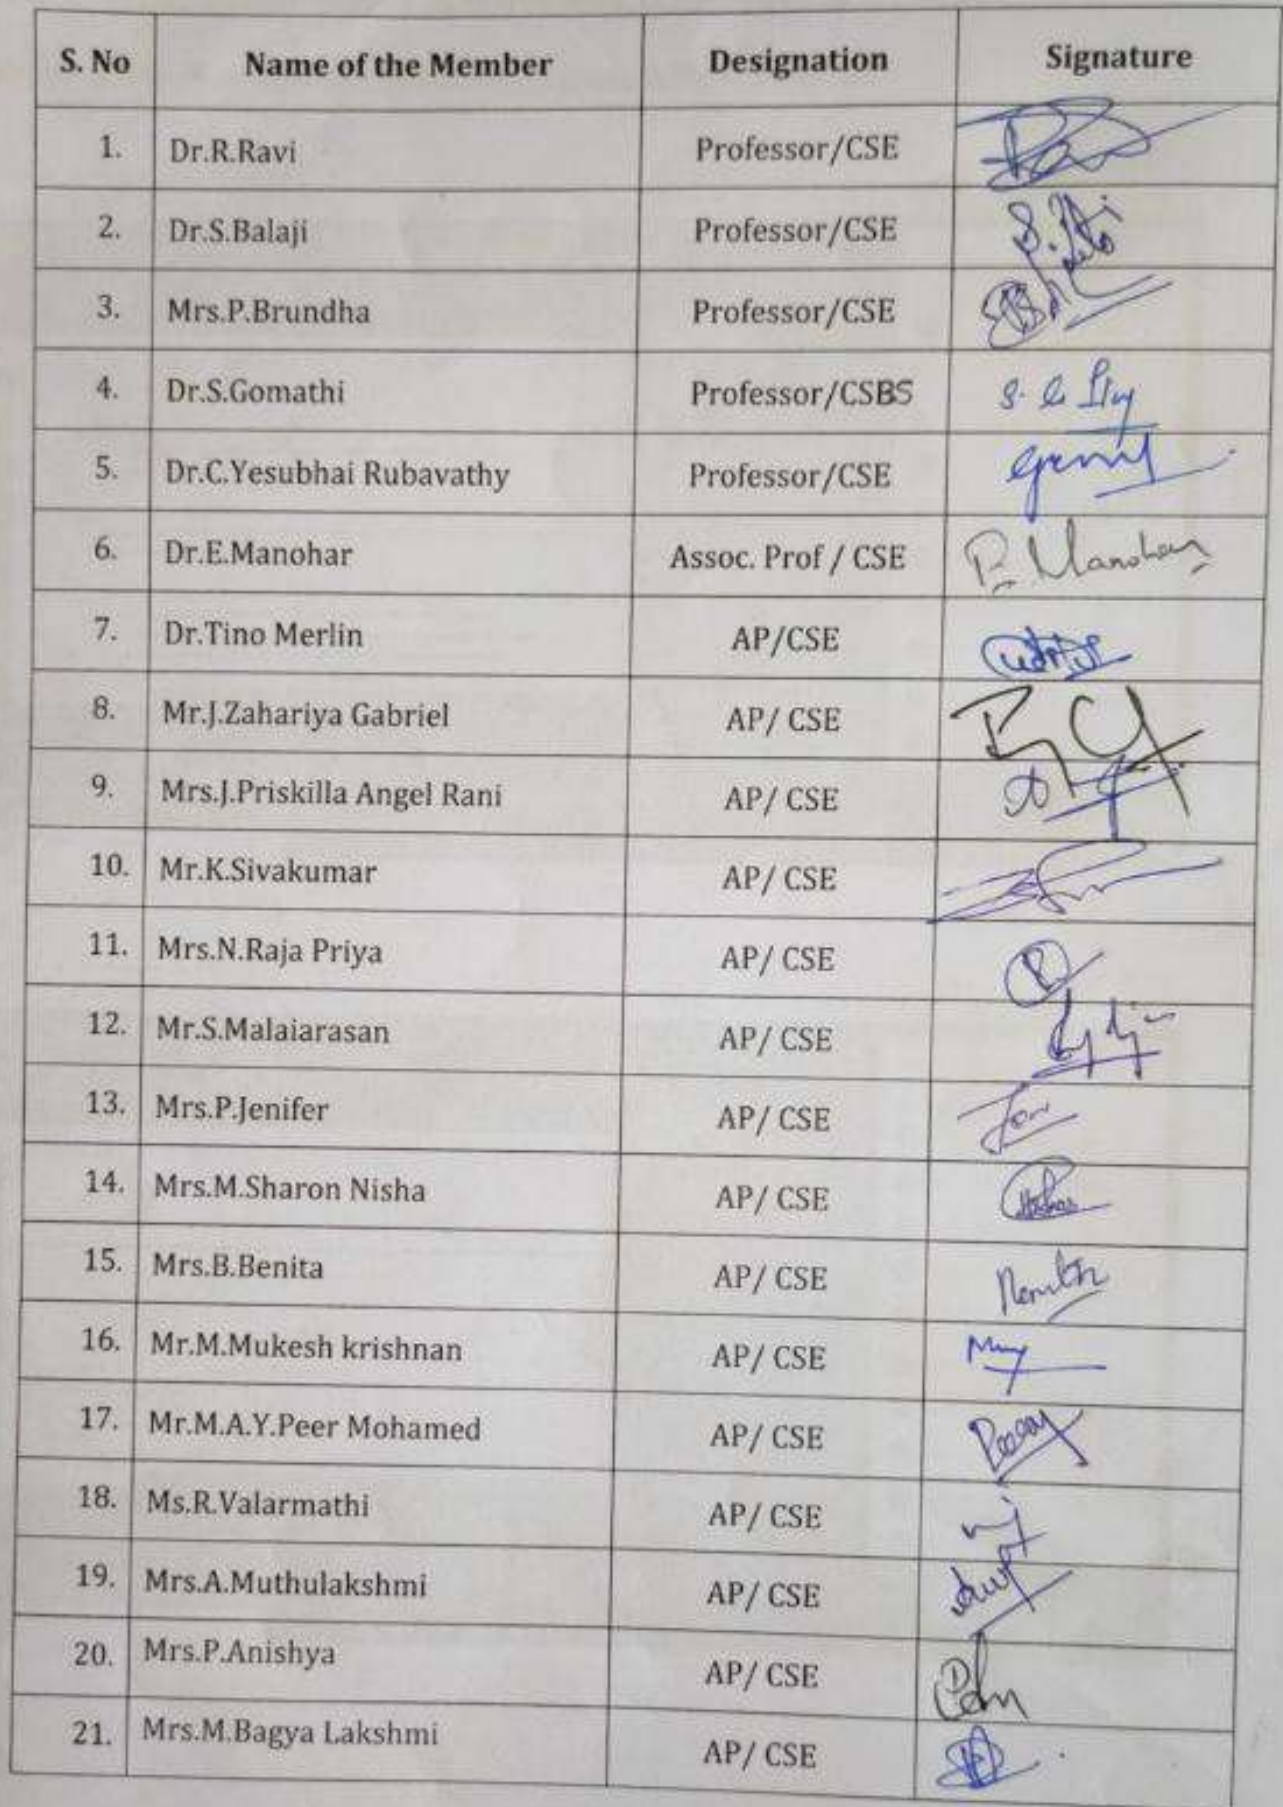 S. No Name of the Member Designation Signature
1. Dr.R.Ravi Professor/CSE
2. Dr.S.Balaji Professor/CSE
3. Mrs.P.Brundha Professor/CSE
4. Dr.S.Gomathi Professor/CSBS
5. Dr.C.Yesubhai Rubavathy Professor/CSE
6. Dr.E.Manohar Assoc. Prof / CSE Manohar
7. Dr.Tino Merlin AP/CSE
8. Mr.J.Zahariya Gabriel AP/ CSE
9. Mrs.J.Priskilla Angel Rani AP/ CSE
10. Mr.K.Sivakumar AP/ CSE
11. Mrs.N.Raja Priya AP/ CSE
12. Mr.S.Malaiarasan AP/ CSE
13. Mrs.P.Jenifer AP/ CSE
14. Mrs.M.Sharon Nisha AP/ CSE
15. Mrs.B.Benita AP/ CSE
16. Mr.M.Mukesh krishnan AP/ CSE
17. Mr.M.A.Y.Peer Mohamed AP/ CSE
18. Ms.R.Valarmathi AP/ CSE
19. Mrs.A.Muthulakshmi AP/ CSE
20. Mrs.P.Anishya AP/ CSE
21. Mrs.M.Bagya Lakshmi AP/ CSE